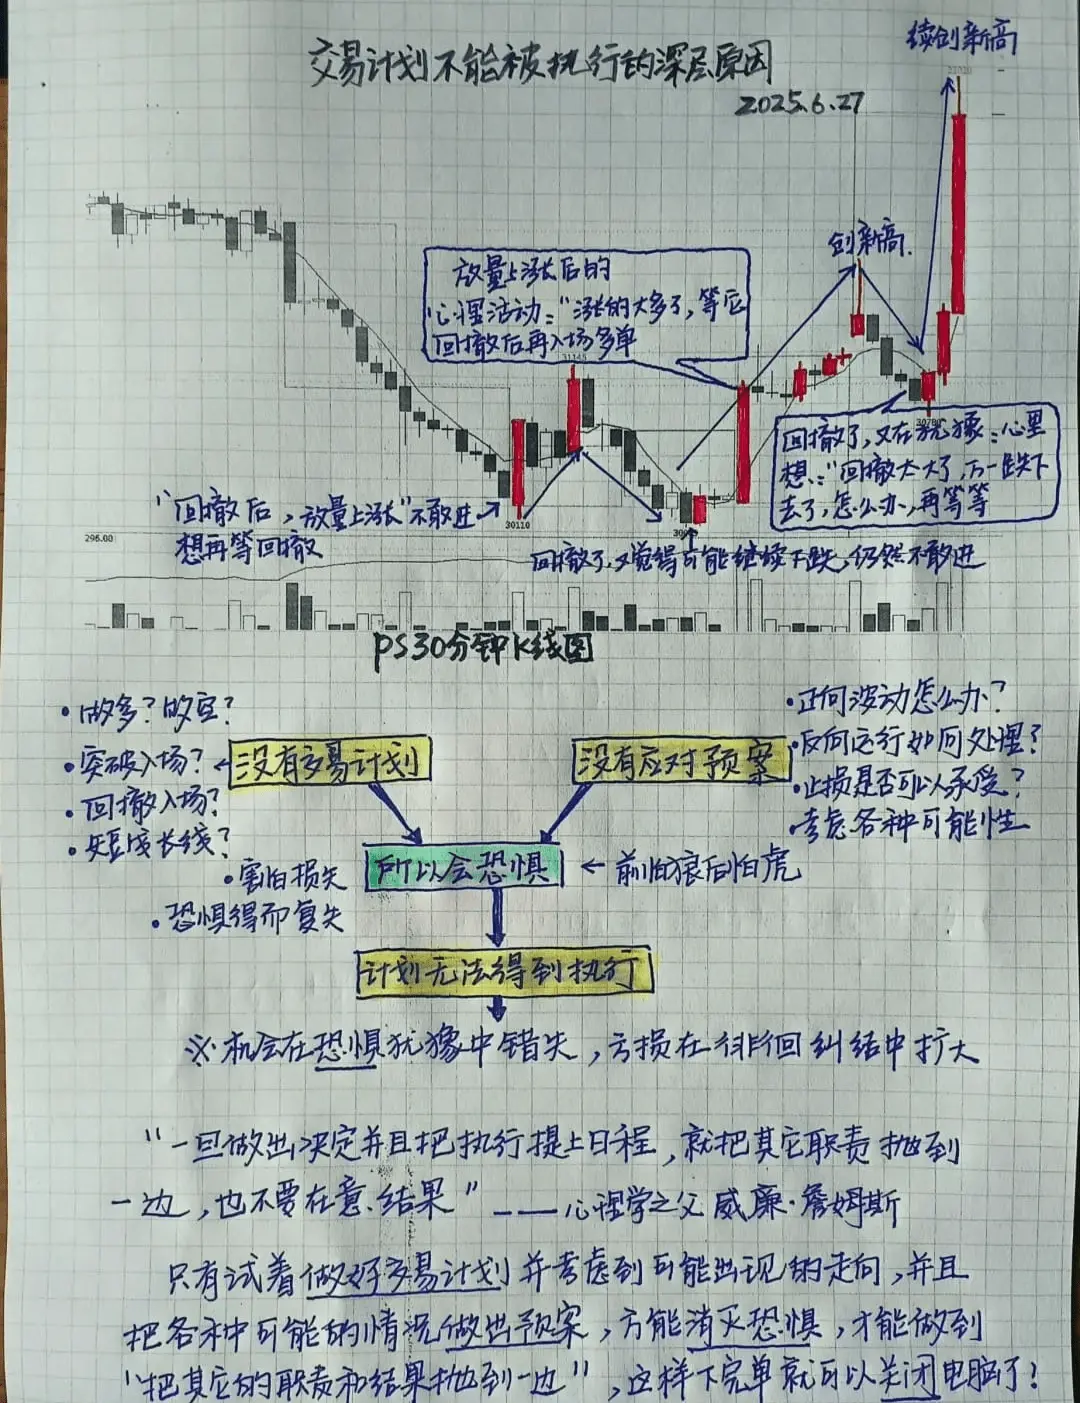 续创新高
交易计划不能被执行的深层原因
2025.6.27
创新高.
放量上涨后的
心理活动:“涨的太多了,等它
回撤后再入场多单
31145
回撤了,又在犹豫:心里
想:“回撤太大了,万一跌下
去了,怎么办,再等等
“回撤后,放量上涨”不敢进
想再等回撤
30110
296.00
回撤了,又觉得可能继续下跌,仍然不敢进
PS30分钟K线图
·做多?做空?
·突破入场?
·回撤入场?
·短线长线?
没有交易计划
没有应对预案
·正向波动怎么办?
·反向运行如何处理?
·止损是否可以承受?
·考虑各种可能性
·害怕损失
·恐惧得而复失
所以会恐惧
前怕狼后怕虎
计划无法得到执行
※机会在恐惧犹豫中错失,亏损在徘徊纠结中扩大
“一旦做出决定并且把执行提上日程,就把其它职责抛到
一边,也不要在意.结果”——心理学之父威廉·詹姆斯
只有试着做好交易计划并考虑到可能出现的走向,并且
把各种可能的情况做出预案,方能消灭恐惧,才能做到
“把其它的职责和结果抛到一边”,这样下完单就可以关闭电脑了!